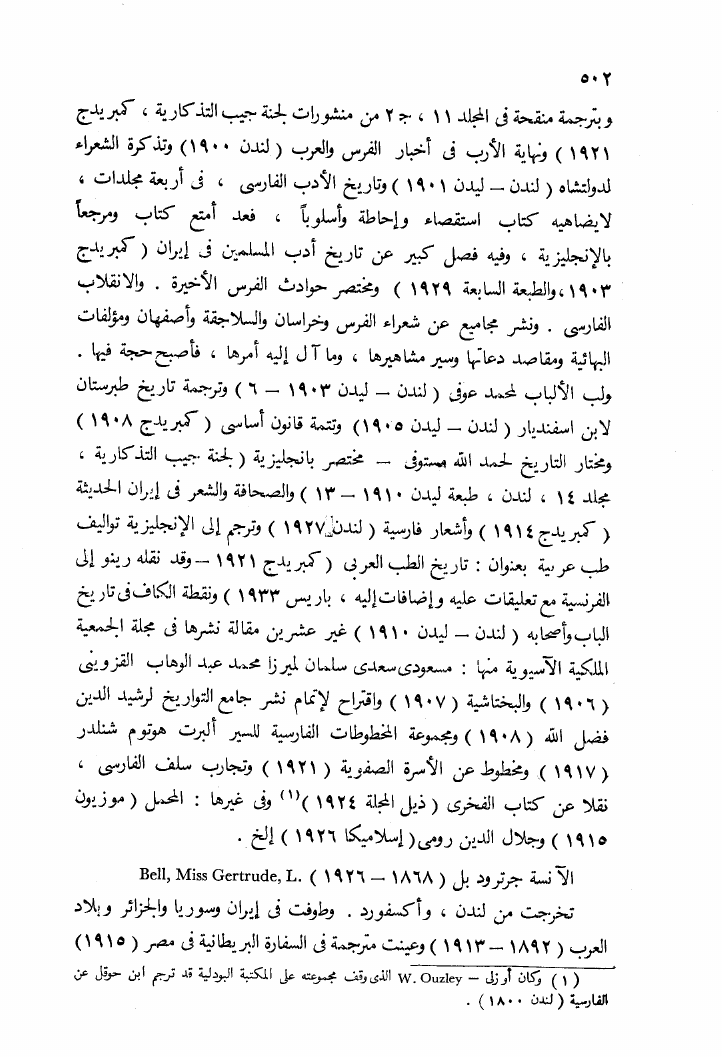 ٥٠٢
وبترجمة منقحة فى المجلد ١١ ، ج ٢ من منشورات لجنة جيب التذكارية ، كمبريدج
١٩٢١ ) ونهاية الأرب فى أخبار الفرس والعرب ( لندن ١٩٠٠ ) وتذكرة الشعراء
لدولتشاه ( لندن – ليدن ١٩٠١ ) وتاريخ الأدب الفارسى ، فى أربعة مجلدات ،
لايضاهيه كتاب استقصاء وإحاطة وأسلوباً ، فعد أمتع كتاب ومرجعاً
بالإنجليزية ، وفيه فصل كبير عن تاريخ أدب المسلمين فى إيران ( كمبريدج
١٩٠٣، والطبعة السابعة ١٩٢٩ ) ومختصر حوادث الفرس الأخيرة . والانقلاب
الفارسى . ونشر مجاميع عن شعراء الفرس وخراسان والسلاجقة وأصفهان ومؤلفات
البهائية ومقاصد دعاتها وسير مشاهيرها ، وما آل إليه أمرها ، فأصبح حجة فيها .
ولب الألباب لمحمد عوفى ( لندن – ليدن ١٩٠٣ – ٦ ) وترجمة تاريخ طبرستان
لابن اسفنديار ( لندن – ليدن ١٩٠٥ ) وتتمة قانون أساسى ( كمبريدج ١٩٠٨ )
ومختار التاريخ لحمد الله مستوفى – مختصر بانجليزية ( لجنة جيب التذكارية ،
مجلد ١٤ ، لندن ، طبعة ليدن ١٩١٠ – ١٣ ) والصحافة والشعر فى إيران الحديثة
( كمبريدج ١٩١٤ ) وأشعار فارسية ( لندن ١٩٢٧ ) وترجم إلى الإنجليزية تواليف
طب عربية بعنوان : تاريخ الطب العربى ( كمبريدج ١٩٢١ – وقد نقله رينو إلى
الفرنسية مع تعليقات عليه وإضافات إليه ، باريس ١٩٣٣ ) ونقطة الكاف فى تاريخ
الباب وأصحابه ( لندن – ليدن ١٩١٠ ) غير عشرين مقالة نشرها فى مجلة الجمعية
الملكية الآسيوية منها : مسعودى سعدى سلمان لميرزا محمد عبد الوهاب القزوينى
( ١٩٠٦ ) والبختاشية ( ١٩٠٧ ) واقتراح لإتمام نشر جامع التواريخ لرشيد الدين
فضل الله ( ١٩٠٨ ) ومجموعة المخطوطات الفارسية للسير ألبرت هوتوم شندلر
( ١٩١٧ ) ومخطوط عن الأسرة الصفوية ( ١٩٢١ ) وتجارب سلف الفارسى ،
نقلا عن كتاب الفخرى ( ذيل المجلة ١٩٢٤ )(١) وفى غيرها : المحمل ( موزيون
١٩١٥ ) وجلال الدين رومى ( إسلاميكا ١٩٢٦ ) إلخ .
الآنسة جرترود بل ( ١٨٦٨ – ١٩٢٦ ) Bell, Miss Gertrude, L.
تخرجت من لندن ، وأكسفورد . وطوفت فى إيران وسوريا والجزائر وبلاد
العرب ( ١٨٩٢ – ١٩١٣ ) وعينت مترجمة فى السفارة البريطانية فى مصر ( ١٩١٥ )
( ١ ) وكان أوزلى – W. Ouzley الذى وقف مجموعته على المكتبة البودلية قد ترجم ابن حوقل عن
الفارسية ( لندن ١٨٠٠ ) .